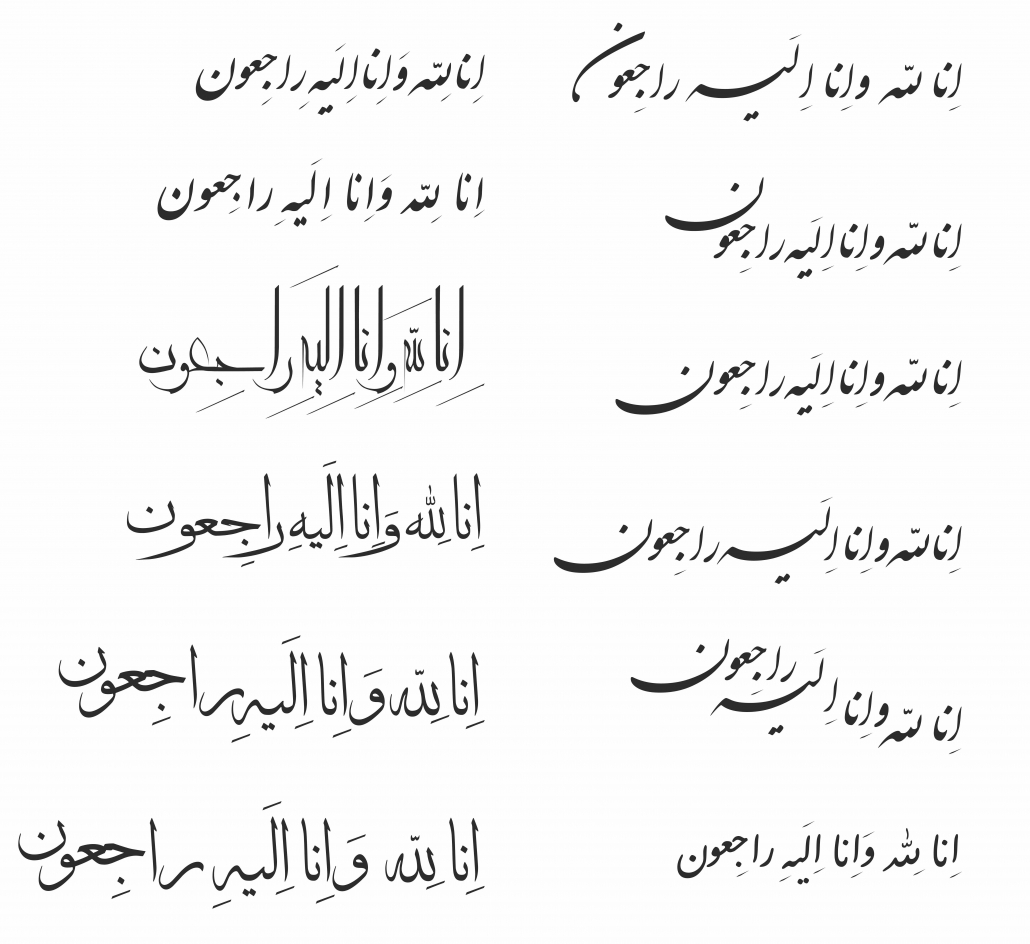 اِنا لله واِنا اِلیه راجعون
اِنا للّه واِنا اِلَیه راجِعون
اِنا للّه واِنا اِلَیه راجِعون
اِنا للّه واِنا اِلَیه راجِعون
اِنا للّه واِنا اِلَیه راجِعون
اِنا لِله وَانا اِلَیهِ راجعون
اِنا لِلّه وَاِنا اِلَیهِ راجِعون
اِنا لِلّه وَاِنا اِلَیهِ راجِعون
اِنا لِلّه وَاِنا اِلَیهِ راجِعون
اِنا لِلّه وَاِنا اِلَیهِ راجِعون
اِنا لِلّه وَاِنا اِلَیهِ راجِعون
اِنا لِلّه وَاِنا اِلَیهِ راجِعون